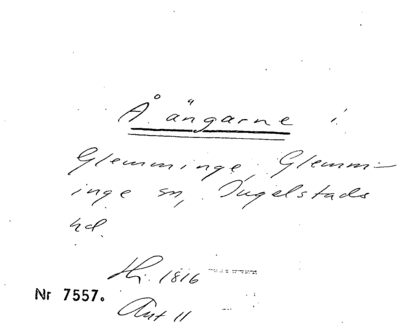 Å ängarne i
Glemminge, Glemm-
inge sn, Ingelstads
hd.
Hi. 1816
Nr 7557.
Ant 11